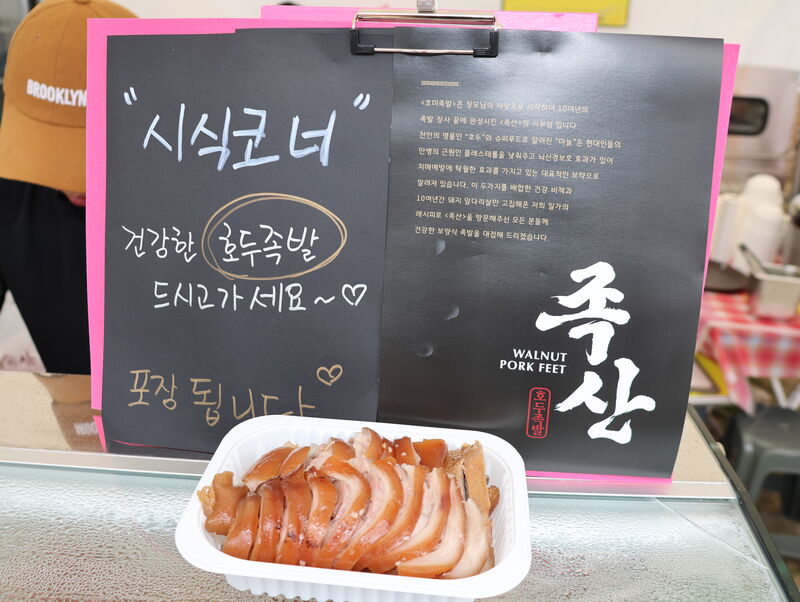 BROOKLYN
"시식코너"
건강한 호두족발
드시고가세요~♡
포장 됩니다♡
<호미족발>은 장모님의 사랑으로 시작하여 10여년의
족발 장사 끝에 완성시킨 <족산>의 자부심 입니다.
천안의 명물인 "호두"와 슈퍼푸드로 알려진 "마늘"은 현대인들의
만병의 근원인 콜레스테롤을 낮춰주고 뇌신경보호 효과가 있어
치매예방에 탁월한 효과를 가지고 있는 대표적인 보약으로
알려져 있습니다. 이 두가지를 배합한 건강 비책과
10여년간 돼지 앞다리살만 고집해온 저희 일가의
레시피로 <족산>을 방문해주신 모든 분들께
건강한 보양식 족발을 대접해 드리겠습니다.
족산
WALNUT
PORK FEET
호두족발